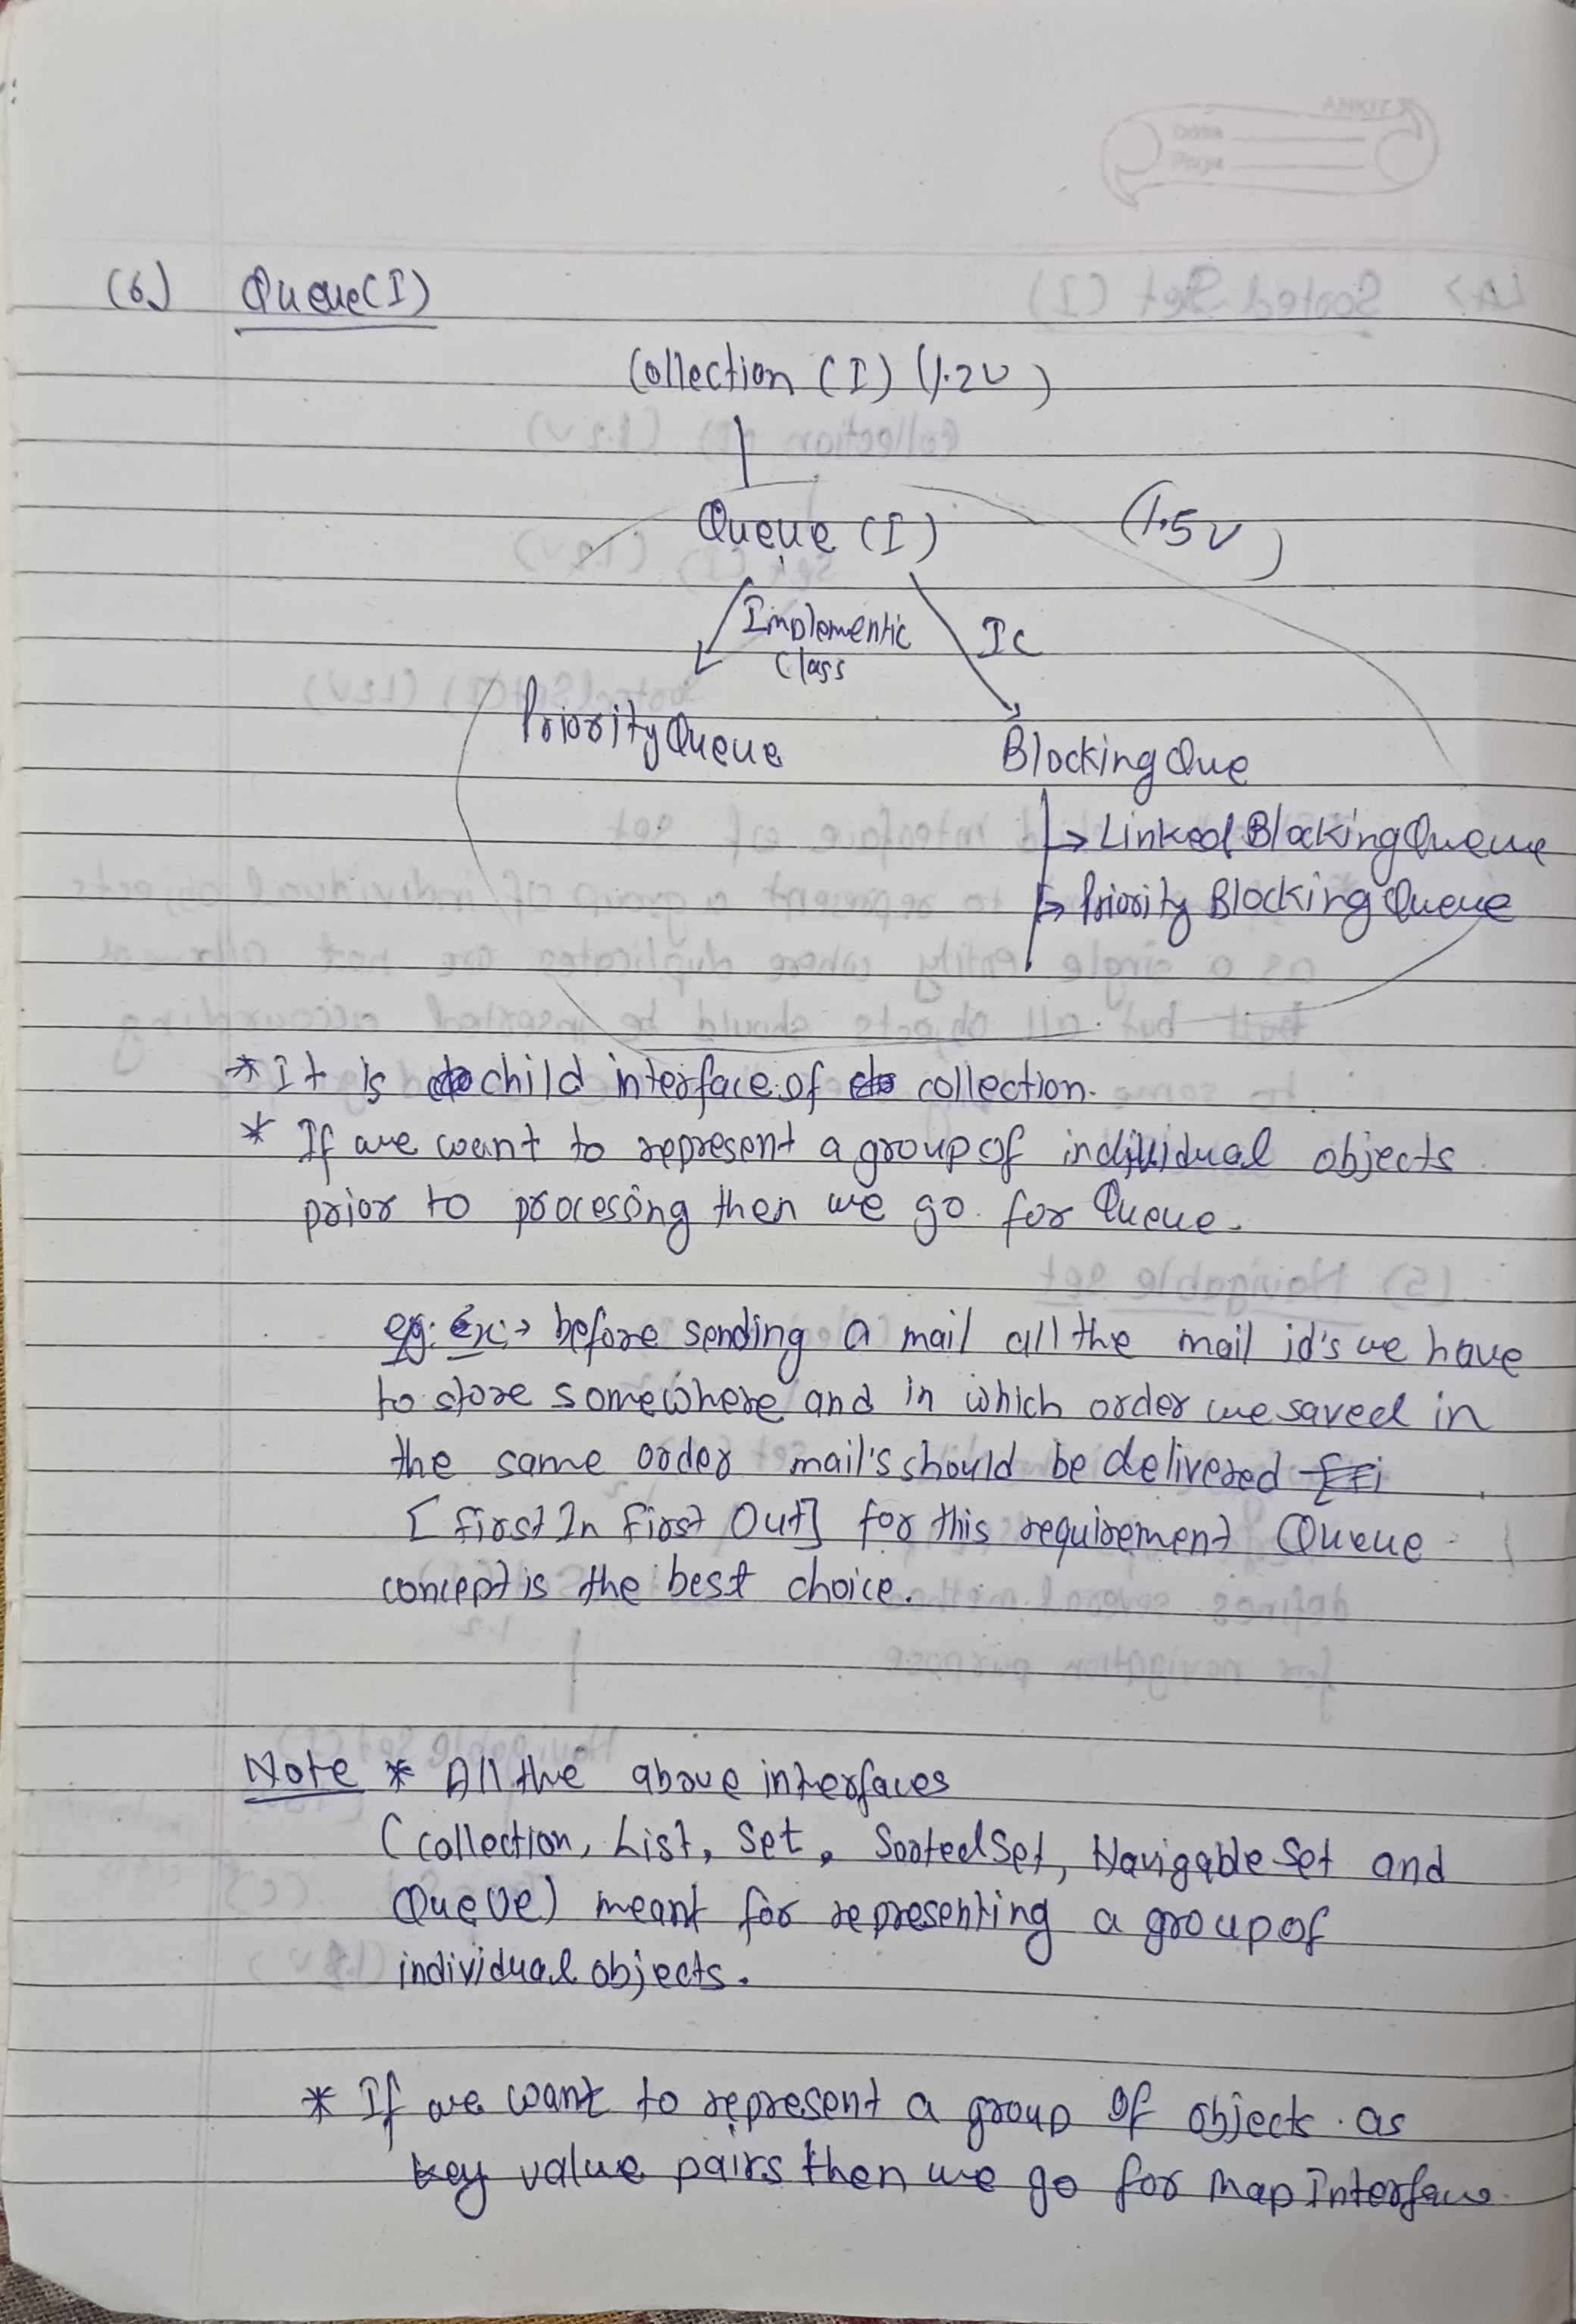 ANKIT
Date
Page
(6) Queue(I)
Collection (I) (1.2V)
Queue (I) (1.5V)
Implementic IC
Class
PriorityQueue
BlockingQue
→ LinkedBlockingQueue
→ Priority BlockingQueue
* It is child interface of collection.
* If we want to represent a group of individual objects
prior to procesing then we go for Queue.
eg: Ex:→ before sending a mail all the mail id's we have
to store somewhere and in which order we saved in
the same order mail's should be delivered
[First In First Out] for this requirement Queue
concept is the best choice.
Note * All the above interfaces
(collection, List, Set, SortedSet, Navigable Set and
Queue) meant for representing a group of
individual objects.
* If we want to represent a group of objects as
key value pairs then we go for Map Interface